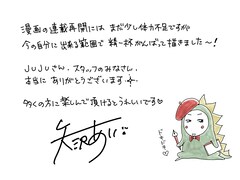 漫画の連載再開には まだ少し体力不足ですが
今の自分に出来る範囲で 精一杯がんばって描きました〜！
JUJUさん、スタッフのみなさん、
本当に ありがとうございます
多くの方に楽しんで頂けるとうれしいです♡
矢沢あい
ドキドキ